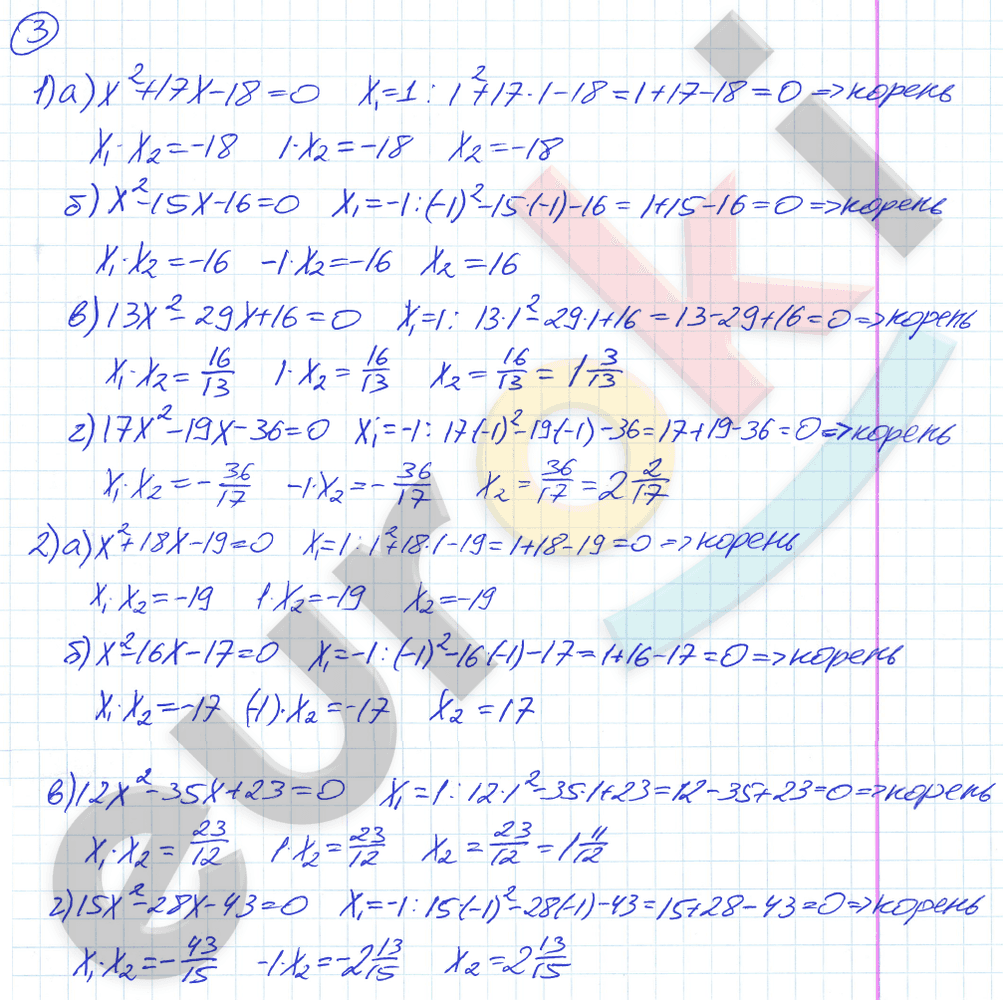 3
1) а) x²+17x-18=0 x₁=1: 1²+17·1-18=1+17-18=0 => корень
x₁·x₂=-18 1·x₂=-18 x₂=-18
б) x²-15x-16=0 x₁=-1: (-1)²-15·(-1)-16=1+15-16=0 => корень
x₁·x₂=-16 -1·x₂=-16 x₂=16
в) 13x²-29x+16=0 x₁=1: 13·1²-29·1+16=13-29+16=0 => корень
x₁·x₂=16/13 1·x₂=16/13 x₂=16/13=1 3/13
г) 17x²-19x-36=0 x₁=-1: 17(-1)²-19(-1)-36=17+19-36=0 => корень
x₁·x₂=-36/17 -1·x₂=-36/17 x₂=36/17=2 2/17
2) а) x²+18x-19=0 x₁=1: 1²+18·1-19=1+18-19=0 => корень
x₁·x₂=-19 1·x₂=-19 x₂=-19
б) x²-16x-17=0 x₁=-1: (-1)²-16(-1)-17=1+16-17=0 => корень
x₁·x₂=-17 (-1)·x₂=-17 x₂=17
в) 12x²-35x+23=0 x₁=1: 12·1²-35·1+23=12-35+23=0 => корень
x₁·x₂=23/12 1·x₂=23/12 x₂=23/12=1 11/12
г) 15x²-28x-43=0 x₁=-1: 15(-1)²-28(-1)-43=15+28-43=0 => корень
x₁·x₂=-43/15 -1·x₂=-2 13/15 x₂=2 13/15
euroki